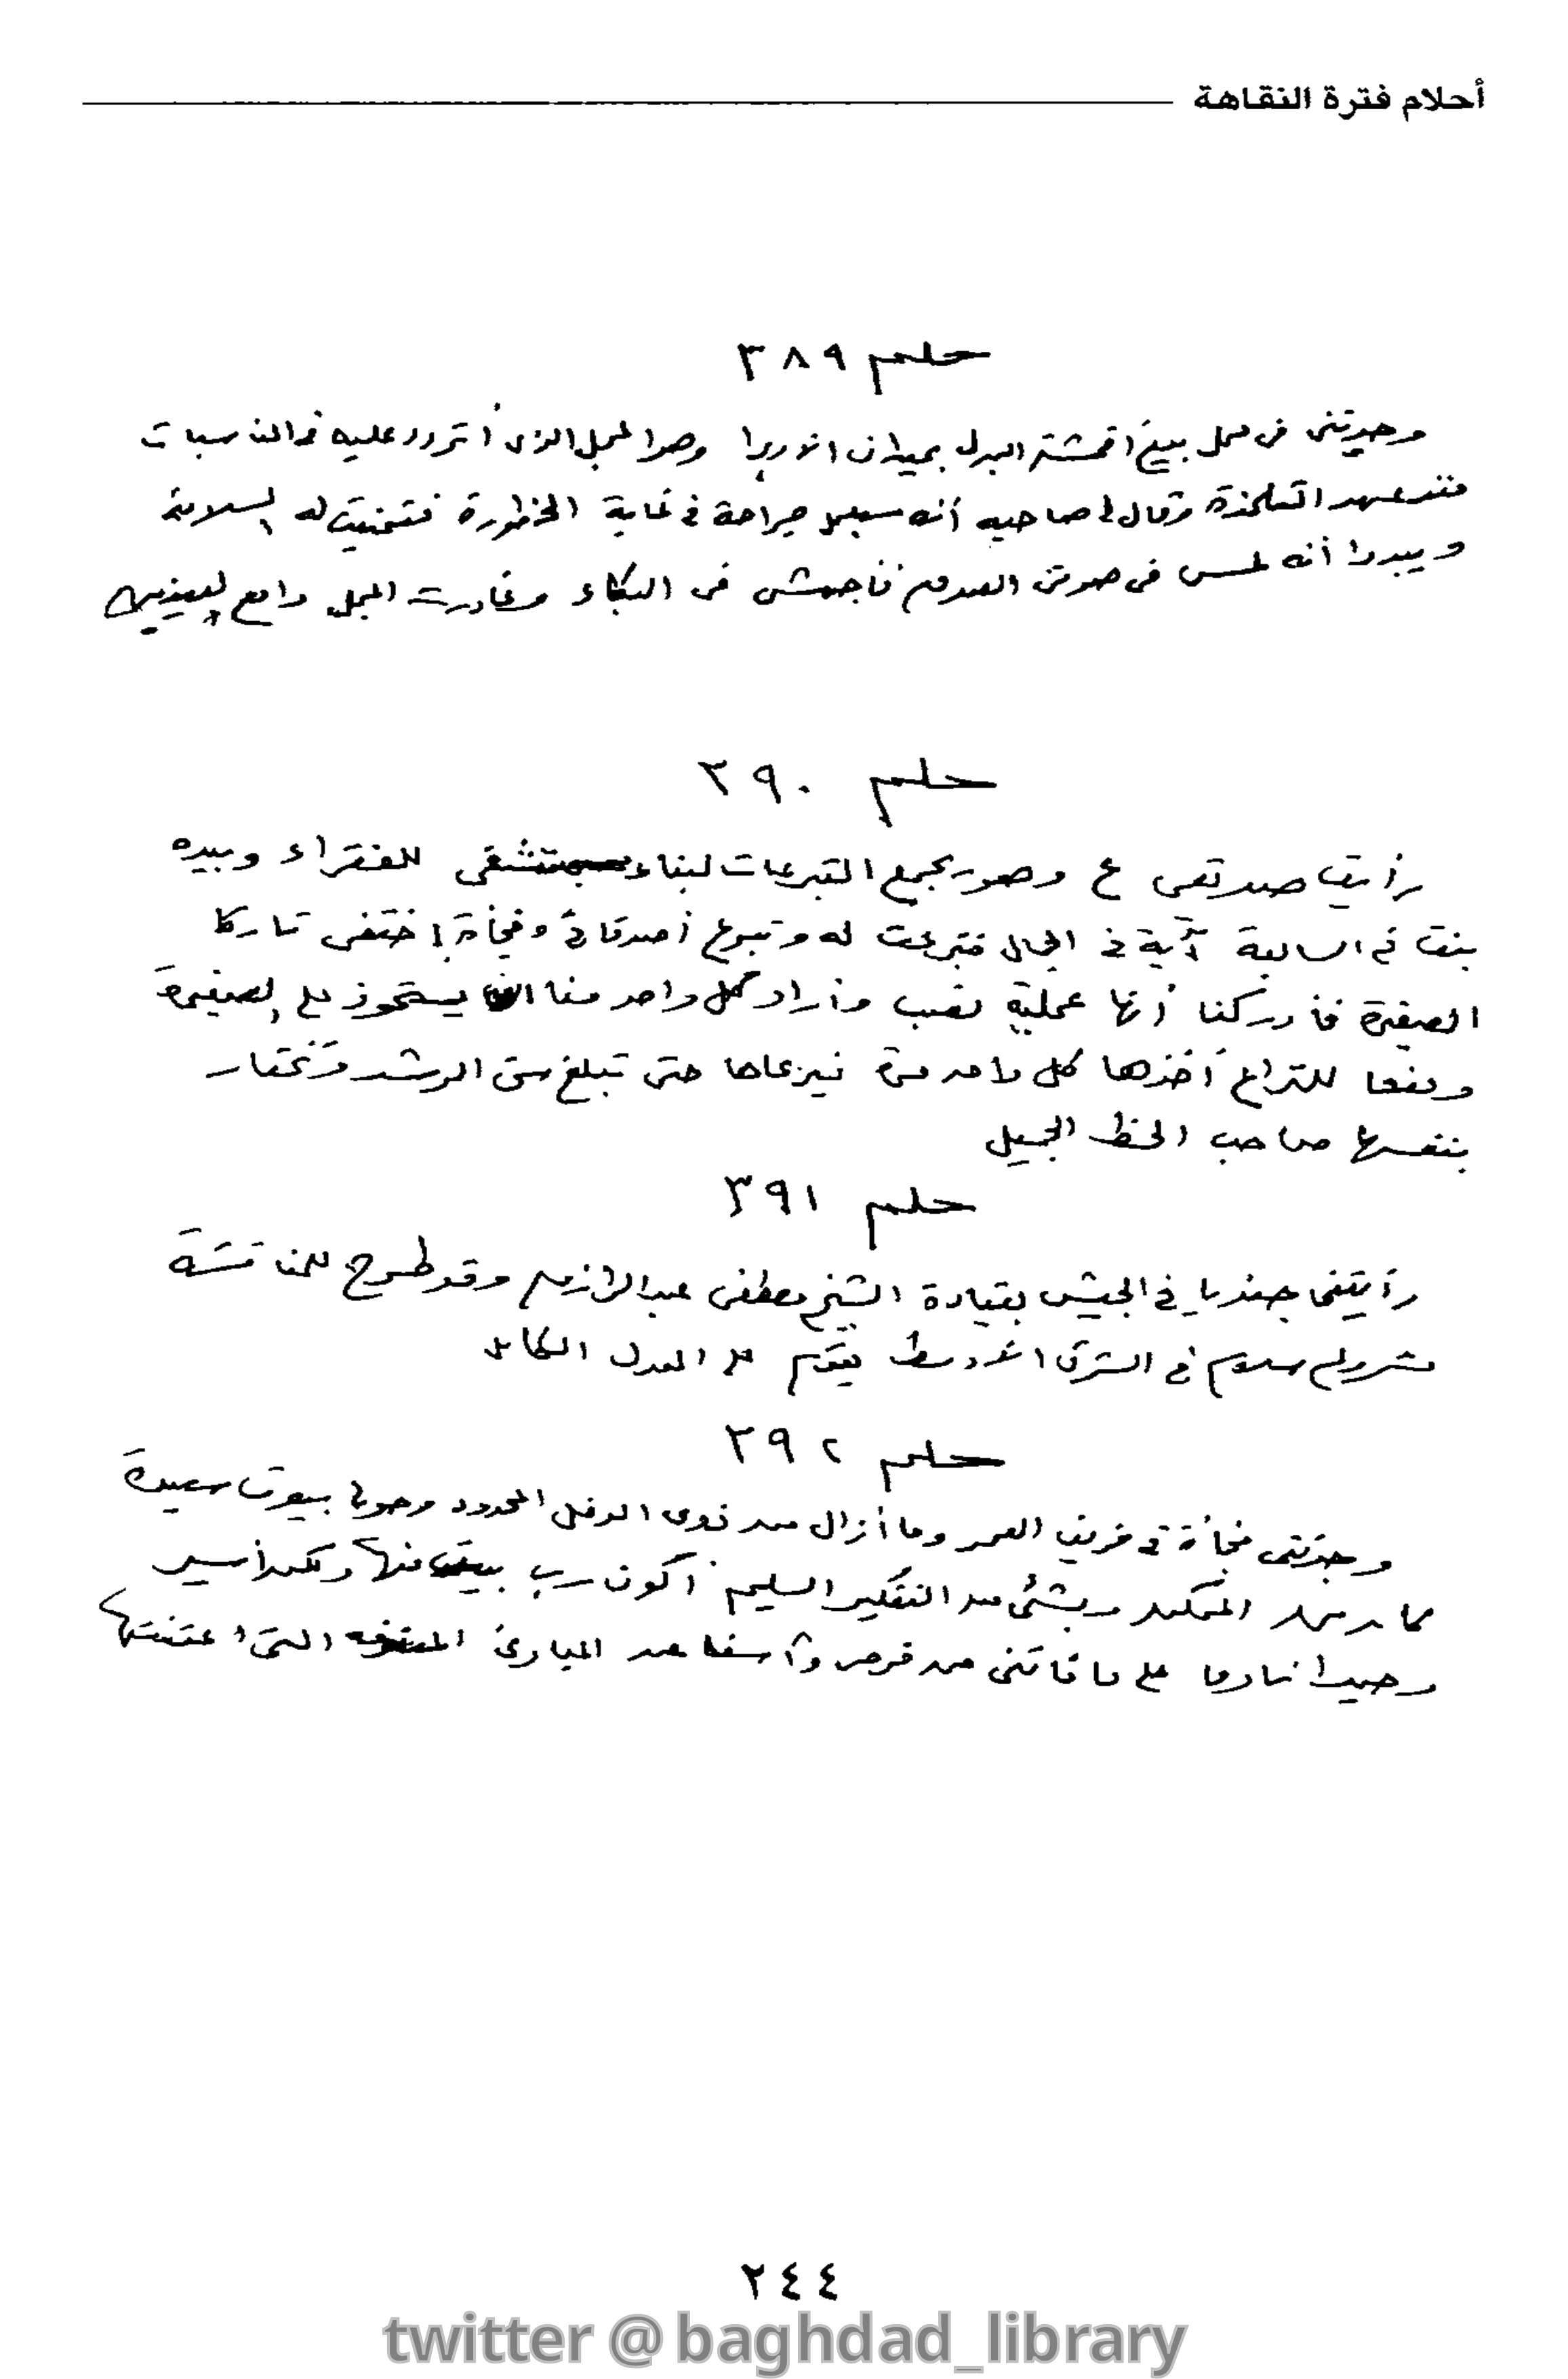 أحلام فترة النقاهة
حلم ٣٨٩
وجدتنى فى محل بيع أقمشة البدل بميدان الأوبرا وهو المحل الذى أتردد عليه فى المناسبات
منذ عهد التلمذة وقال لى صاحبه أنه سيعمل جراحة فى غاية الخطورة فتمنيت له السلامة
ويبدو أنه لمس فى صوتى الصدق فأجهش فى البكاء وغادرت المحل دامع العينين
حلم ٣٩٠
رأيت صديقى ع وهو يجمع التبرعات لبناء مستشفى للفقراء وبيده
بنت فى السابعة آية فى الجمال فتبرعت له وتبرع أصدقائى وفجأة اختفى تاركا
الصغيرة فأدركنا أنها عملية نصب وأراد كل واحد منا أن يستحوذ على الصغيرة
ومنعا للنزاع أخذها كل واحد مدة نرعاها حتى تبلغ سن الرشد وتختار
بنفسها صاحب الحظ الجميل
حلم ٣٩١
رأيتنى جنديا فى الجيش بقيادة الشيخ مصطفى عبد الرازق وقد طرح للمناقشة
مشروع سلام فى الشرق الأوسط يقوم على العدل الكامل
حلم ٣٩٢
وجدتنى فجأة فى خريف العمر وما أزال من ذوى الدخل المحدود وحولى بيوت سعيدة
كان من الممكن وبشئ من التفكير السليم أن أكون رب بيت منها ولكنى أسير
وحيدا نادما على ما فاتنى من فرص وآسفا عن المبادئ التى اعتنقتها
٢٤٤
twitter @baghdad_library